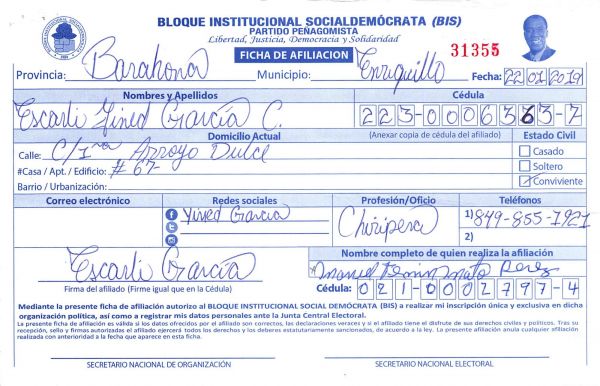 BLOQUE INSTITUCIONAL SOCIALDEMÓCRATA (BIS)
PARTIDO PEÑAGOMISTA
Libertad, Justicia, Democracia y Solidaridad
FICHA DE AFILIACION
31355
Provincia: Barahona Municipio: Enriquillo Fecha: 22/01/2019
Nombres y Apellidos Cédula
Escarli Yined García C. 223-0006363-7
Domicilio Actual (Anexar copia de cédula del afiliado) Estado Civil
Calle: C/1ra Arroyo Dulce
Casado
#Casa / Apt. / Edificio: #67- Soltero
Barrio / Urbanización: Conviviente
Correo electrónico Redes sociales Profesión/Oficio Teléfonos
Yined Garcia Chiripera 1) 849-855-1921
2)
Nombre completo de quien realiza la afiliación
Escarli García Manuel Perez
Firma del afiliado (Firme igual que en la Cédula) Cédula: 021-0002797-4
Mediante la presente ficha de afiliación autorizo al BLOQUE INSTITUCIONAL SOCIAL DEMÓCRATA (BIS) a realizar mi inscripción única y exclusiva en dicha
organización política, así como a registrar mis datos personales ante la Junta Central Electoral.
La presente ficha de afiliación es válida si los datos ofrecidos por el afiliado son correctos, las declaraciones veraces y si el afiliado tiene el disfrute de sus derechos civiles y políticos. Tras su
recepción, sello y firmas autorizadas el afiliado ejercerá todos los derechos y los deberes estatutariamente sancionados, de acuerdo a la ley. La presente afiliación anula cualquier afiliación
realizada con anterioridad a la fecha que aparece en esta ficha.
SECRETARIO NACIONAL DE ORGANIZACIÓN SECRETARIO NACIONAL ELECTORAL